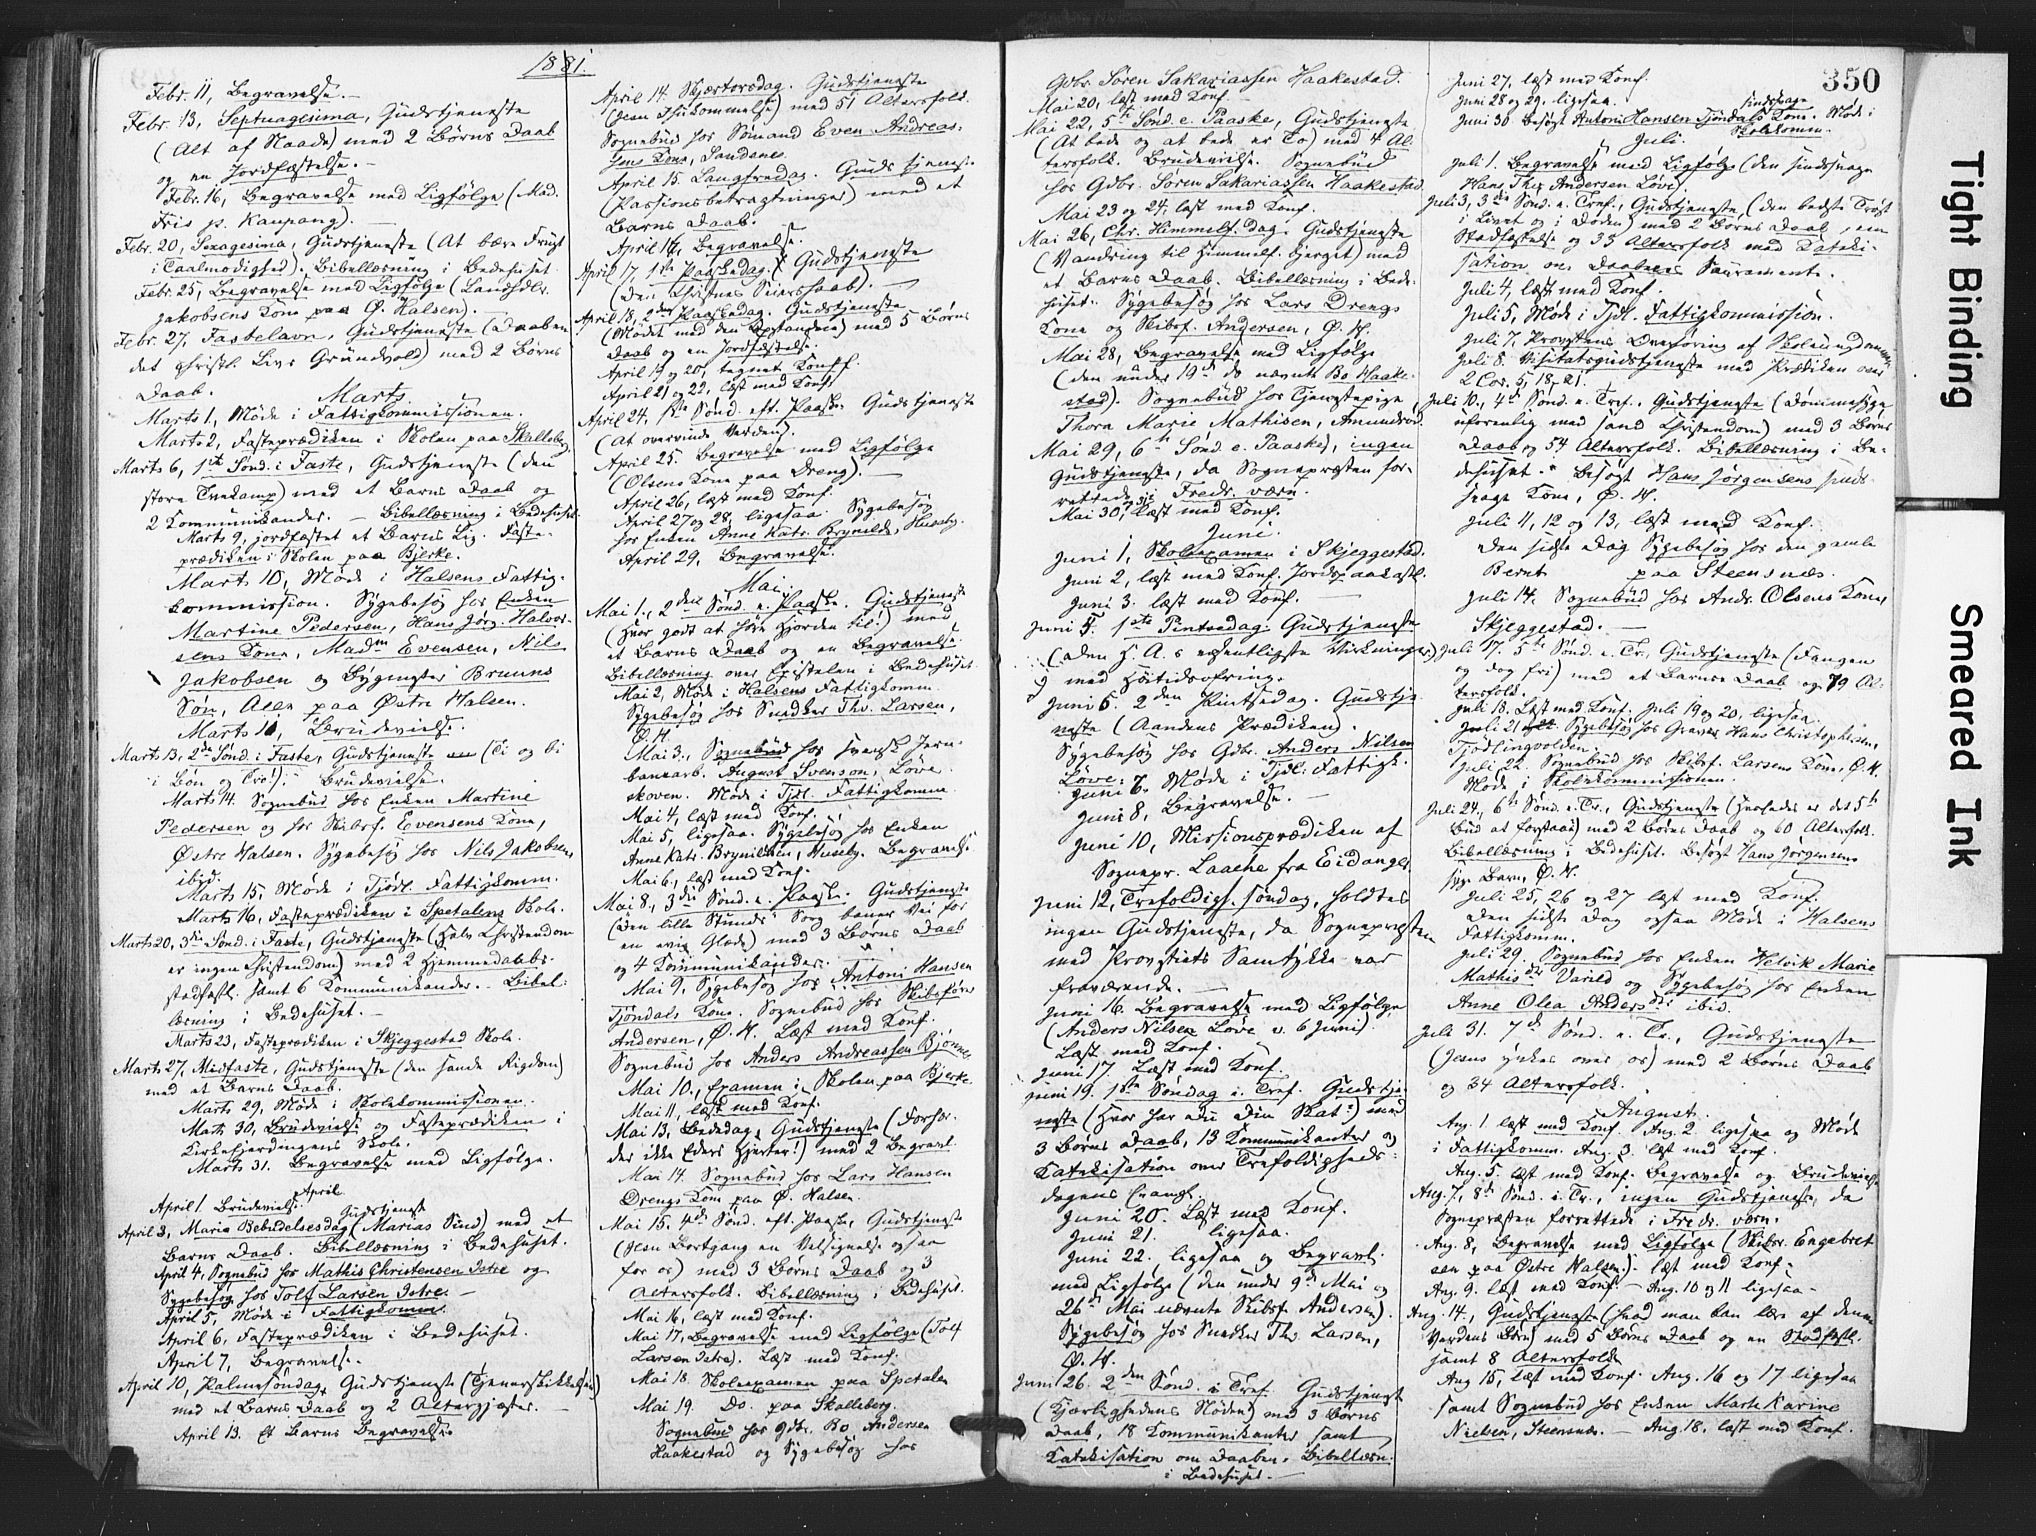 1881.
Febr. 11, Begravelse. -
Febr. 13, Septuagesima, Gudstjeneste
(Alt af Naade) med 2 Børns Daab
og en Jordfæstelse. -
Febr. 16, Begravelse med Ligfölge (Mad.
Friis p. Kaupang). -
Febr. 20, Sexagesima, Gudstjeneste (At bære Frugt
i Taalmodighed). Bibellæsning i Bedehuset.
Febr. 25, Begravelse med Ligfölge (Landhdlr.
Jakobsens Kone paa Ø. Halsen).
Febr. 27, Fastelavn, Gudstjeneste (Daaben
det christl. Livs Grundvold) med 2 Børns
Daab.
Marts.
Marts 1, Möde i Fattigkommissionen.
Marts 2, Fasteprædiken i Skolen paa Skalleberg.
Marts 6, 1ste Sønd. i Faste, Gudstjeneste (den
store Tvekamp) med et Barns Daab og
2 Kommunikander. - Bibellæsning i Bedehuset.
Marts 9, jordfæstet et Barns Lig. Faste-
prædiken i Skolen paa Bjerke.
Mart. 10, Möde i Halsens Fattig-
kommission. Sygebesög hos Enken
Martine Pedersen, Hans Jörg. Halvor-
sens Kone, Madm Evensen, Nils
Jakobsen og Bygmester Bruuns
Søn, Alle paa Østre Halsen.
Marts 11, Brudevielse.
Marts 13, 2den Sønd. i Faste, Gudstjeneste (Ti og bi
i Bøn og Tro). Brudevielse.
Marts 14. Sognebud hos Enken Martine
Pedersen og hos Skibsf. Evensens Kone,
Østre Halsen. Sygebesög hos Nils Jakobsen,
ibid.
Marts 15, Möde i Tjödl. Fattigkomm.
Marts 16, Fasteprædiken i Spetalens Skole.
Marts 20, 3die Sønd. i Faste, Gudstjeneste (Halv Christendom
er ingen Christendom) med 2 Hjemmedaabs-
stadfæst. samt 6 Kommunikander. - Bibel-
læsning i Bedehuset. -
Marts 23, Fasteprædiken i Skjeggestad Skole.
Marts 27, Midfaste, Gudstjeneste (den sande Rigdom)
med et Barns Daab.
Marts 29, Möde i Skolekommissionen.
Marts 30, Brudevielse og Fasteprædiken i
Kirkefjerdingens Skole.
Marts 31. Begravelse med Ligfölge.
April
April 1. Brudevielse.
April 3, Maria Bebudelsesdag Gudstjeneste (Marias Sind) med et
Barns Daab. Bibellæsning i Bedehuset.
April 4, Sognebud hos Mathis Christensen Istre og
Sygebesög hos Tolf Larsen Istre. -
April 5, Möde i Fattigkomm.
April 6, Fasteprædiken i Bedehuset.
April 7, Begravelse.
April 10, Palmesöndag, Gudstjeneste (Tjenerskikkelsen)
med et Barns Daab og 2 Altergjæster. -
April 13. Et Barns Begravelse.
April 14. Skjærtorsdag. Gudstjeneste
(Jesu Ihukommelse) med 51 Altersfolk.
Sognebud hos Sömand Even Andreas-
sens Kone, Sandenes.
April 15. Langfredag. Gudstjeneste
(Passionsbetragtninger) med et
Barns Daab.
April 16, Begravelse.
April 17, 1ste Paaskedag. Gudstjeneste
(Den Christnes Seierssaab). -
April 18, 2den Paaskedag. Gudstjeneste
(Mödet med den Opstandne) med 5 Børns
Daab og en Jordfæstelse.
April 19 og 20, tegnet Konff.
April 21 og 22, læst med Konf.
April 24, 1ste Sønd. eft. Paaske Gudstjeneste
(At overvinde Verden).
April 25. Begravelse med Ligfölge
(Olsens Kone paa Dreng). -
April 26, læst med Konf.
April 27 og 28, ligesaa. Sygebesög
hos Enken Anne Katr. Brynilds., Huseby.
April 29, Begravelse.
Mai.
Mai 1., 2den Sønd. e. Paaske. Gudstjeneste
(Hvor godt at höre Hjorden til!) med
et Barns Daab og en Begravelse.
Bibellæsning over Epistelen i Bedehuset.
Mai 2, Möde i Halsens Fattigkomm.
Sygebesög hos Snedker Thv. Larsen,
Ø. H.
Mai 3., Sognebud hos svensk Jern-
banearb. August Svenson, Löve-
skoven. Möde i Tjdl. Fattigkomm.
Mai 4, læst med Konf.
Mai 5, ligesaa. Sygebesög hos Enken
Anne Katr. Brynildsen, Huseby. Begravelse
Mai 6., læst med Konf.
Mai 8., 3die Sønd. e. Paaske. Gudstjeneste
(Den lille Stunds Sorg baner Vei for
en evig Glæde) med 3 Børns Daab
og 4 Kommunikander. -
Mai 9, Sygebesög hos Antoni Hansen
Tjöndals Kone. Sognebud hos Skibsförer
Andersen, Ø. H. Læst med Konf.
Sognebud hos Anders Andreassen Bjønnes
Mai 10., Examen i Skolen paa Bjerke.
Mai 11, læst med Konf.
Mai 13, Bededag, Gudstjeneste (Forhær-
der ikke Eders Hjerter!) med 2 Begravl.
Mai 14. Sognebud hos Lars Hansen
Drengs Kone paa Ø. Halsen.
Mai 15. 4de Sønd. eft. Paaske, Gudstjeneste
(Jesu Bortgang en Velsignelse ogsaa
for os) med 3 Børns Daab og 3
Altersfolk. Bibellæsning i Bedehuset.
Mai 16, læst med Konf.
Mai 17, Begravelse med Ligfölge (Tolf
Larsen Istre). Læst med Konf.
Mai 18. Skoleexamen paa Spetalen
Mai 19. Do. paa Skalleberg.
Sognebud hos Gdbr. Bo Andersen
Haakestad og Sygebesög hos
350
Gdbr. Sören Sakariassen Haakestad.
Mai 20, læst med Konf.
Mai 22, 5te Sønd. e. Paaske, Gudstjeneste
(At bede og at bede er To) med 4 Al-
tersfolk. Brudevielse. Sognebud
hos Gdbr. Sören Sakariassen Haakestad.
Mai 23 og 24, læst med Konf.
Mai 26, Chr. Himmelf. dag. Gudstjeneste
(Vandring til Himmelf. bjerget) med
et Barns Daab. Bibellæsning i Bede-
huset. Sygebesög hos Lars Drengs
Kone og Skibsf. Andersen, Ø. H.
Mai 28, Begravelse med Ligfölge
(den under 19de ds nævnte Bo Haake-
stad). Sognebud hos Tjenestepige
Thora Marie Mathisen, Amundröd.
Mai 29, 6te Sønd. e. Paaske), ingen
Gudstjeneste, da Sognepræsten for-
rettede i Fredr. værn.
Mai 30 og 31, læst med Konf.
Juni.
Juni 1, Skoleexamen i Skjeggestad.
Juni 2, læst med Konf. Jordspaakast.
Juni 3. læst med Konf. -
Juni 5. 1ste Pintsedag. Gudstjeneste
(Den H. A. s væsentligste Virkninger)
med Höitidsofring.
Juni 6. 2den Pintsedag. Gudstje-
neste (Aandens Prædiken).
Sygebesög hos Gdbr. Anders Nilsen
Löve. Möde i Tjdl. Fattigk.
Juni 7.
Juni 8, Begravelse. -
Juni 10, Missionsprædiken af
Sognepr. Laache fra Eidanger.
Juni 12, Trefoldigh. söndag, holdtes
ingen Gudstjeneste, da Sognepræsten
med Provstiets Samtykke var
fraværende. -
Juni 16. Begravelse med Ligfölge
(Anders Nilsen Löve v. 6 Juni).
Læst med Konf.
Juni 17. Læst med Konf.
Juni 19. 1ste Söndag e. Tref. Gudstje-
neste (Hvor har Du Din Skat?) med
3 Børns Daab, 13 Kommunikanter og
Katekisation over Trefoldigheds-
dagens Evangl.
Juni 20. Læst med Konf.
Juni 21. ligesaa.
Juni 22. ligesaa og Begravl.
med Ligfölge (den under 9de Mai og
26de Mai nævnte Skibsf. Andersen).
Sygebesög hos Snedker Thv. Larsen,
Ø. H.
Juni 26. 2den Sønd. e. Tref. Gudstjeneste
(Kjærlighedens Nöden) med 3 Børns
Daab, 18 Kommunikanter samt
Katekisation om Daaben. Bibellæsn.
i Bedehuset. -
Juni 27, læst med Konf.
Juni 28 og 29. ligesaa.
Juni 30 Besögt Antoni Hansen Tjöndals sindssvage Kone. Möde i
Skolekomm.
Juli.
Juli 1. Begravelse med Ligfölge (den sindssvage
Hans Andersen Löve).
Juli 3, 3die Sønd. e. Tref., Gudstjeneste (den bedste Tröst
i Livet og i Döden) med 2 Børns Daab, en
Stadfæstelse og 33 Altersfolk med Kateki-
sation om Daabens Sacramente.
Juli 4, læst med Konf.
Juli 5, Möde i Tjdl. Fattigkommission.
Juli 7, Provstens Overhöring af Skoleungdommen.
Juli 8. Visitatsgudstjeneste med Prædiken over
2 Cor. 5, 18-21.
Juli 10., 4de Sønd. e. Tref., Gudstjeneste (Dömmesyge
uforenlig med sand Christendom) med 3 Børns
Daab og 54 Altersfolk. Bibellæsning i Be-
dehuset. Besögt Hans Jørgensens sinds-
svage Kone, Ø. H.
Juli 11, 12 og 13, læst med Konf.
Den sidste Dag Sygebesög hos den gamle
Bernt paa Steensnæs.
Juli 14. Sognebud hos Andr. Olsens Kone,
Skjeggestad. -
Juli 17. 5te Sønd. e. Tr., Gudstjeneste (Fangen
og dog fri) med et Barns Daab og 79 Al-
tersfolk.
Juli 18. Læst med Konf. Juli 19 og 20, ligesaa.
Juli 21 Sygebesög hos Graver Hans Christophersen,
Tjödlingvolden.
Juli 22. Sognebud hos Skibsf. Larsens Kone, Ø. H.
Möde i Skolekommissionen.
Juli 24., 6te Sønd. e. Tr., Gudstjeneste (Hvorledes er det 5te
Bud at forstaa) med 2 Børns Daab og 60 Altersfolk.
Bibellæsning i Bedehuset. Besögt Hans Jörgensens
syge Barn, Ø. H.
Juli 25, 26 og 27 læst med Konf.
Den sidste Dag ogsaa Möde i Halsens
Fattigkomm.
Juli 29. Sognebud hos Enken Helvik Marie
Mathisdtr Varild og Sygebesög hos Enken
Anne Olea Andersdtr ibid.
Juli 31. 7de Sønd. e. Tr., Gudstjeneste
(Jesus ynkes over os) med 2 Børns Daab
og 34 Altersfolk.
August.
Aug. 1 læst med Konf. Aug. 2 ligesaa og Möde
i Fattigkomm. Aug. 3. læst med Konf.
Aug. 5. læst med Konf. Begravelse og Brudevielse
Aug. 7, 8de Sønd. e. Tr., ingen Gudstjeneste, da
Sognepræsten forrettede i Fredr. værn.
Aug. 8, Begravelse med Ligfölge (Skibsr. Engebret
sen paa Østre Halsen). læst med Konf. -
Aug. 9. læst med Konf. - Aug. 10 og 11 ligesaa -
Aug. 14., Gudstjeneste (hvad man kan lære af denne
Verdens Børn) med 5 Børns Daab og en Stadfæst.
samt 8 Altersfolk
Aug 15, læst med Konf. Aug. 16 og 17 ligesaa
samt Sognebud hos Enken Marte Karine
Nielsen, Steensnæs. - Aug. 18, læst med Konf.
Tight Binding
Smeared Ink